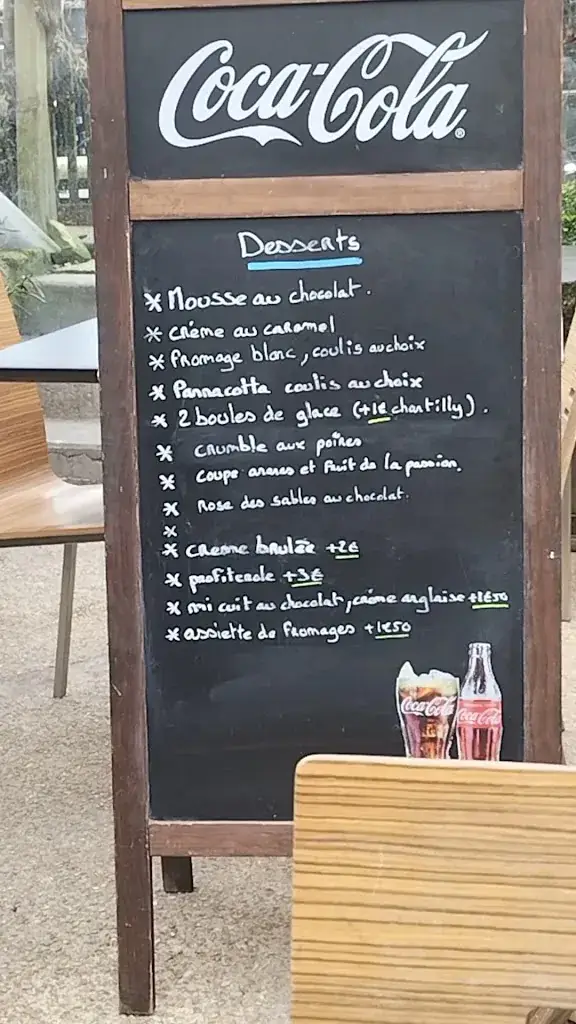 Coca-Cola®
Desserts
* Mousse au chocolat.
* crème au caramel
* fromage blanc, coulis au choix
* Pannacotta coulis au choix
* 2 boules de glace (+1€ chantilly).
* crumble aux poires
* coupe ananas et fruit de la passion.
* Rose des sables au chocolat.
*
* creme brulée +2€
* profiterole +3€
* mi cuit au chocolat, crème anglaise +1€50
* assiette de fromages +1€50
Coca-Cola Coca-Cola